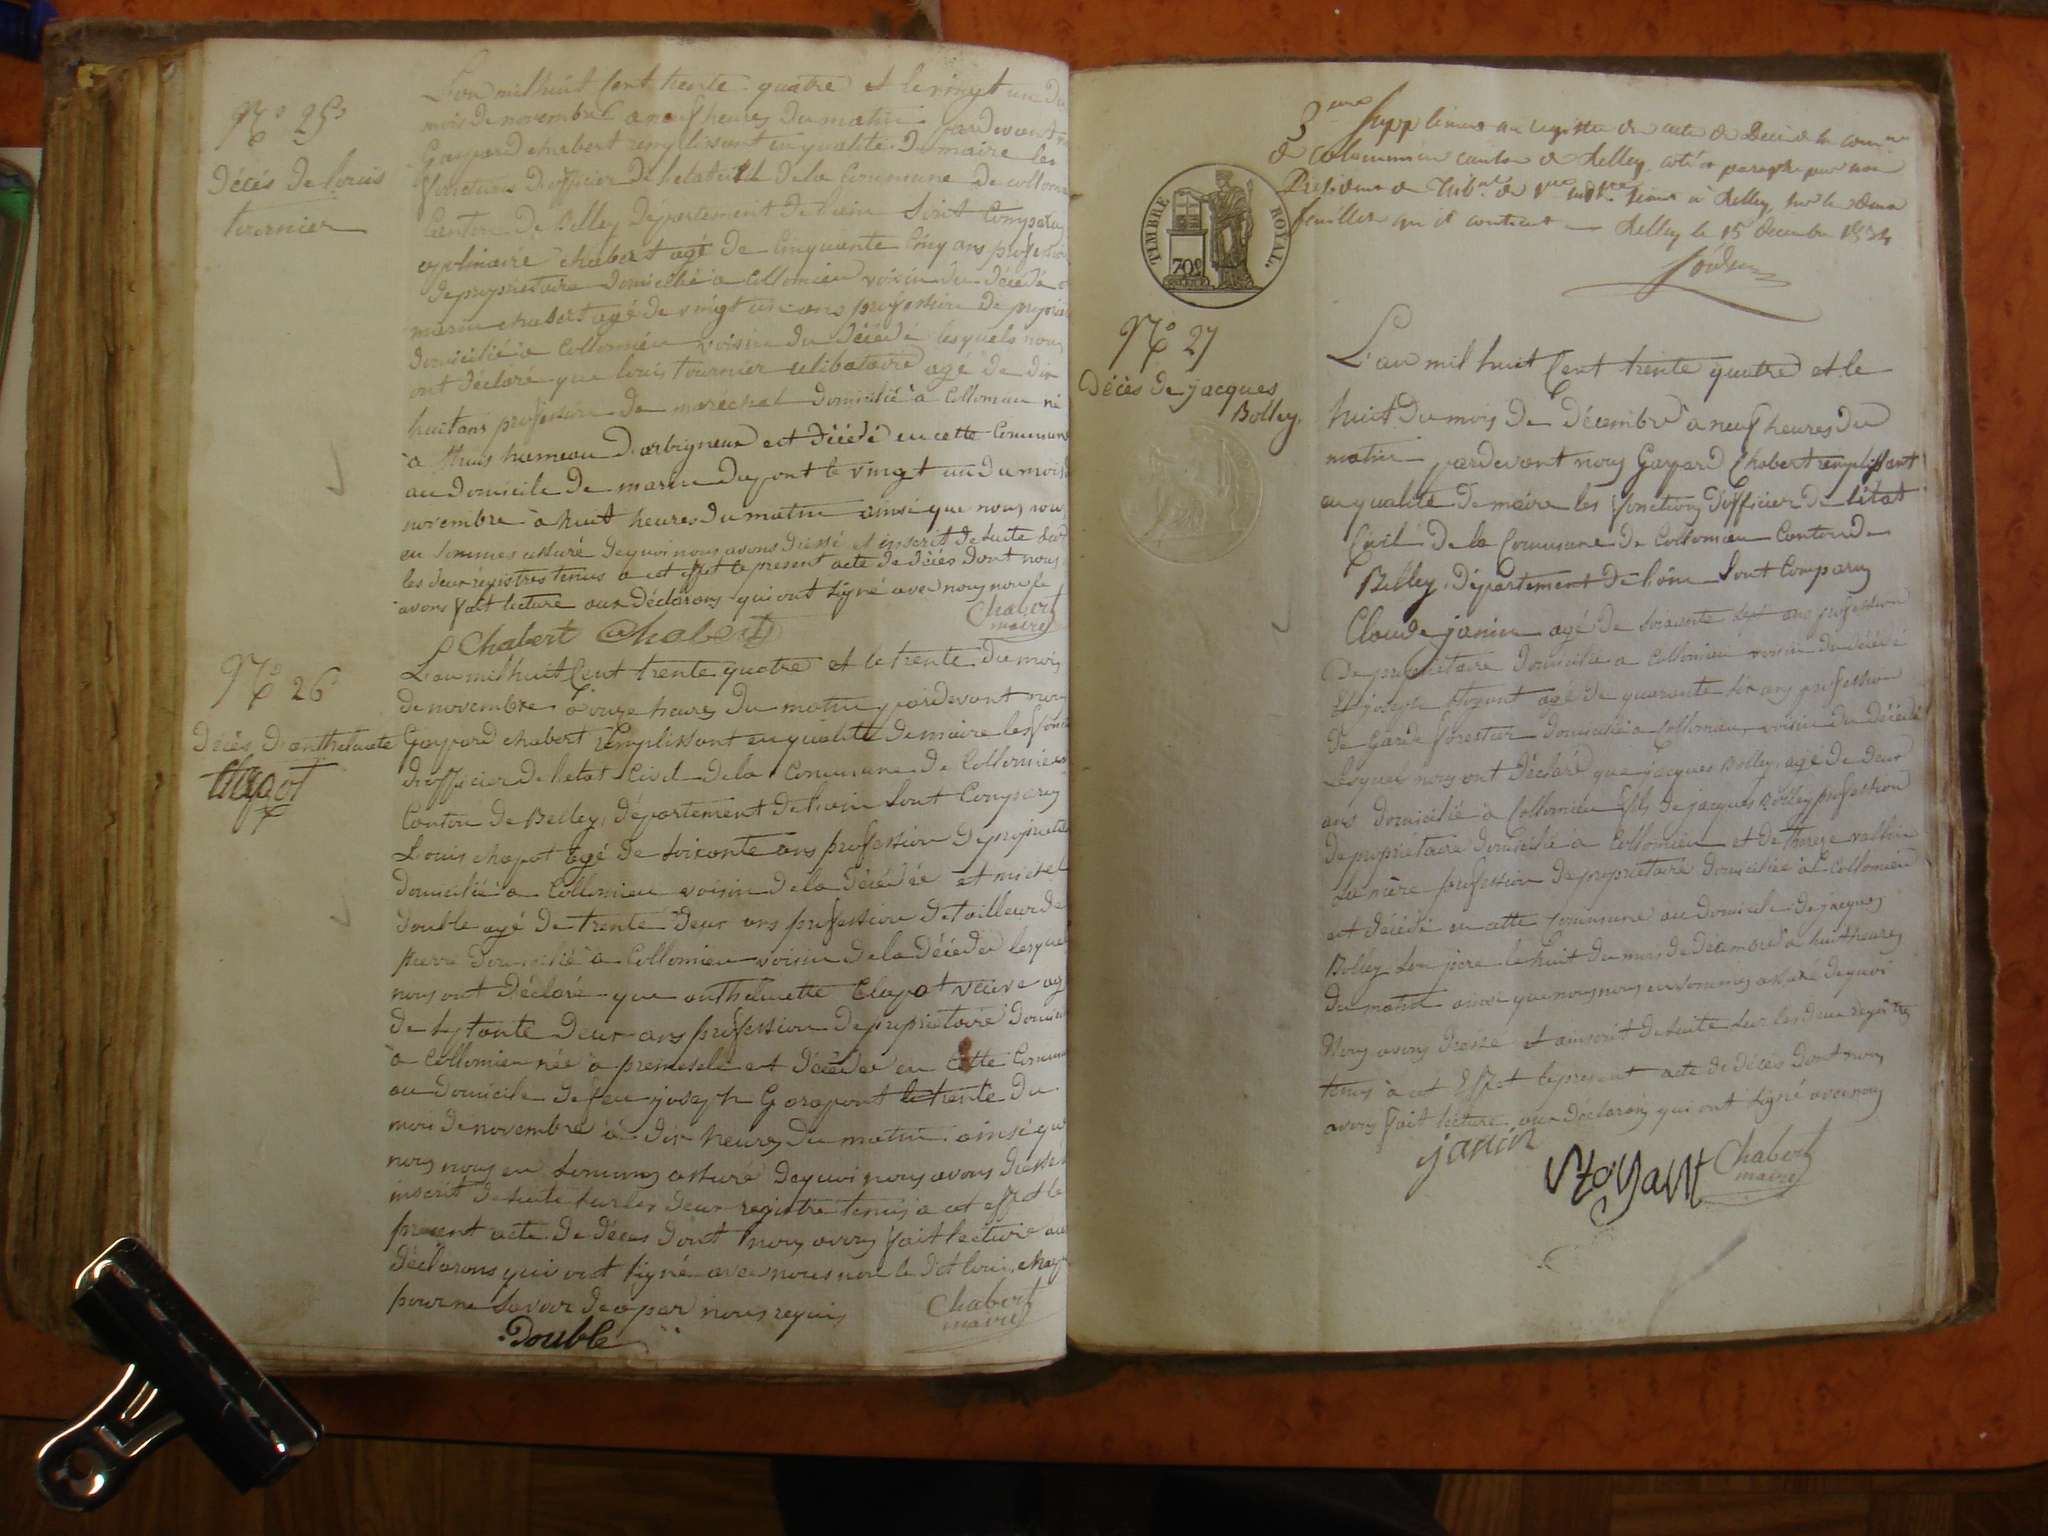 N° 25
Décés de louis
tournier
L'an mil huit Cent trente quatre et le vingt un du
mois de novembre a neuf heures du matin pardevant
Gaspard chabert remplissant en qualité de maire les
fonctions d'officier de letat de la Commune de collomieu
Canton de Belley Département de l'ain Sont Comparus
apolinaire chabert agé de Cinquante Cinq ans profession
de proprietaire domicilié a Collomieu voisin du décédé
marin chabert agé de vingt ans profession de propriét
domicilié a Collomieu voisin du décédé lesquels nous
ont déclaré que louis tournier célibataire agé de dix
huit ans profession de marechal domicilié a Collomieu né
à thuis hameau d'arbigneux est décédé en cette Commune
au domicile de marin dupont le vingt un du mois
novembre à huit heures du matin ainsi que nous nous
en sommes assuré dequoi nous avons dressé et inscrit desuite sur
les deux régistres tenus a cet effet le present acte de décès dont nous
avons fait lecture aux déclarans qui ont signé avec nous
Chabert
maire
L Chabert Chabert
N° 26
Décés d'anthelmette
Clapot
L'an mil huit Cent trente quatre et le trente du mois
de novembre à onze heures du matin pardevant nous
Gaspard chabert remplissant en qualité de maire les fonct
d'officier de letat Civil de la Commune de Collomieu
Canton de Belley, département de l'ain Sont Comparus
Louis chapot agé de soixante ans profession de propriet
domicilié a Collomieu voisin de la décédée et michel
double agé de trente deux ans profession de tailleur de
pierre domicilié à Collomieu voisin de la décédée lesquel
nous ont déclaré que anthelmette Clapot veuve ag
de septante deux ans profession de proprietaire domici
à Collomieu née à premeselle et décédée en Cette Commu
au domicile de feu joseph Garapont le trente du
mois de novembre à dix heures du matin ainsi que
nous nous en sommes assuré dequoi nous avons dressé
inscrit desuite sur les deux registre tenus a cet effet le
présent acte de décès dont nous avons fait lecture aux
déclarans qui ont signé avec nous non le dit louis chap
pour ne savoir de ce par nous requis
Chabert
maire
Double
3me Supplément au registre des actes de Décès de la comne
de Colomieu canton de Belley coté et paraphé par nous
Président du Tribal de 1ere instce séant à Belley, sur les deux
feuilles qu'il contient Belley le 15 decembre 1834
TIMBRE ROYAL.
70c
N° 27
Décès de jacques
Bolley.
L'an mil huit Cent trente quatre et le
huit du mois de Décembre à neuf heures du
matin pardevant nous Gaspard Chabert remplissant
en qualité de maire les fonctions d'officier de l'état
Civil de la Commune de Collomieu Canton de
Belley, département de l'ain Sont Comparus
Claude janin agé de soixante sept ans profession
De proprietaire domicilié a Collomieu voisin du décédé
Et joseph agé de quarante six ans profession
de Garde forestier domicilié a Collomieu, voisin du décédé
Lesquels nous ont déclaré que jacques Bolley, agé de deux
ans domicilié à Collomieu fils de jacques Bolley profession
de proprietaire domicilié à Collomieu et de thereze vallin
sa mère profession de proprietaire domiciliée à Collomieu
est décédé en cette Commune au domicile de jacques
Bolley son pere le huit du mois de décembre à huit heures
du matin ainsi que nous nous en sommes assuré dequoi
Nous avons dressé et inscrit desuite sur les deux registres
tenus à cet effet le présent acte de décès dont nous
avons fait lecture aux déclarans qui ont signé avec nous
janin
Chabert
maire